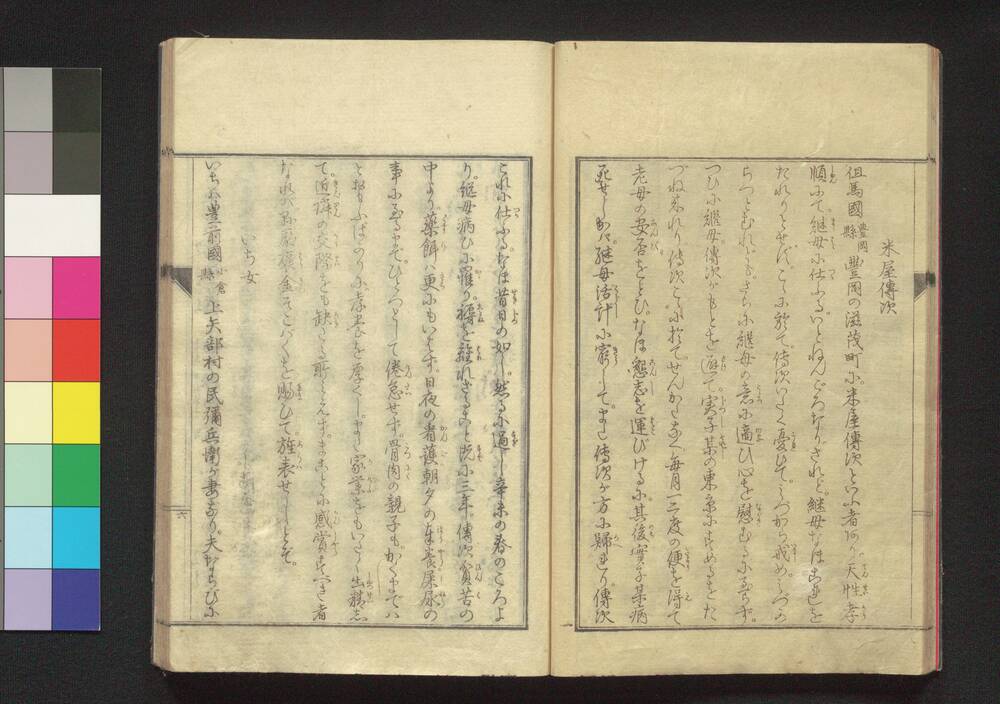 米屋傳次
但馬國豊岡縣豊岡の滋茂町に米屋傳次といふ者あり天性孝
順にて。継母に仕ふる。いとねんごろなりされど。継母なほ
たれりとせず。こゝに於て傳次いたく憂ひて。みづから戒め。みづか
らつとむれども。さらに継母の意に適ひ心を慰むるに至らず。
つひに継母傳次がもとを避て。実子某の東京にすめるをた
づねまれり傳次こゝに於て。せんかたなく毎月一二度の便を得て
老母の安否をとひ。なほ懇志を運びけるに其後實子某病
死せしかバ継母活計に窮して。また傳次が方に歸れり傳次
これに仕ふる。なほ昔日の如し。然るに過し辛未の春のころよ
り。継母病ひに罹り。褥を離れざること既に三年。傳次貧苦の
中より。藥餌ハ更にもいはず。日夜の看護朝夕の奉養屎尿の
事に至るまで。ひとつとして倦怠せず。骨肉の親子も。かくまでハ
とおもふばかりに孝養を厚くし。また家業をもいたく出精し
て。近隣の交際をも缺くる所見えず。まことに感賞すべき者
なれバ縣廳褒金そこバくを賜ひて。旌表せしとぞ。
いち女
いちハ豊前國小倉縣上矢部村の民彌兵衛が妻なり夫ならびに
六